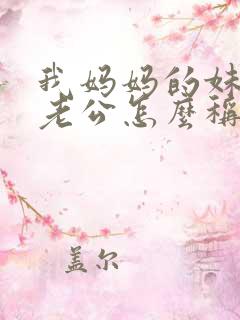 我妈妈的妹
老公怎麼稱
盖尔